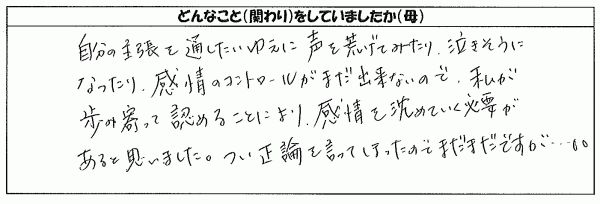 どんなこと(関わり)をしていましたか(母)
自分の主張を通したいゆえに声を荒げてみたり、泣きそうに
なったり、感情のコントロールがまだ出来ないので、私が
歩み寄って認めることにより、感情を沈めていく必要が
あると思いました。つい正論を言ってしまったのでまだまだですが…。。